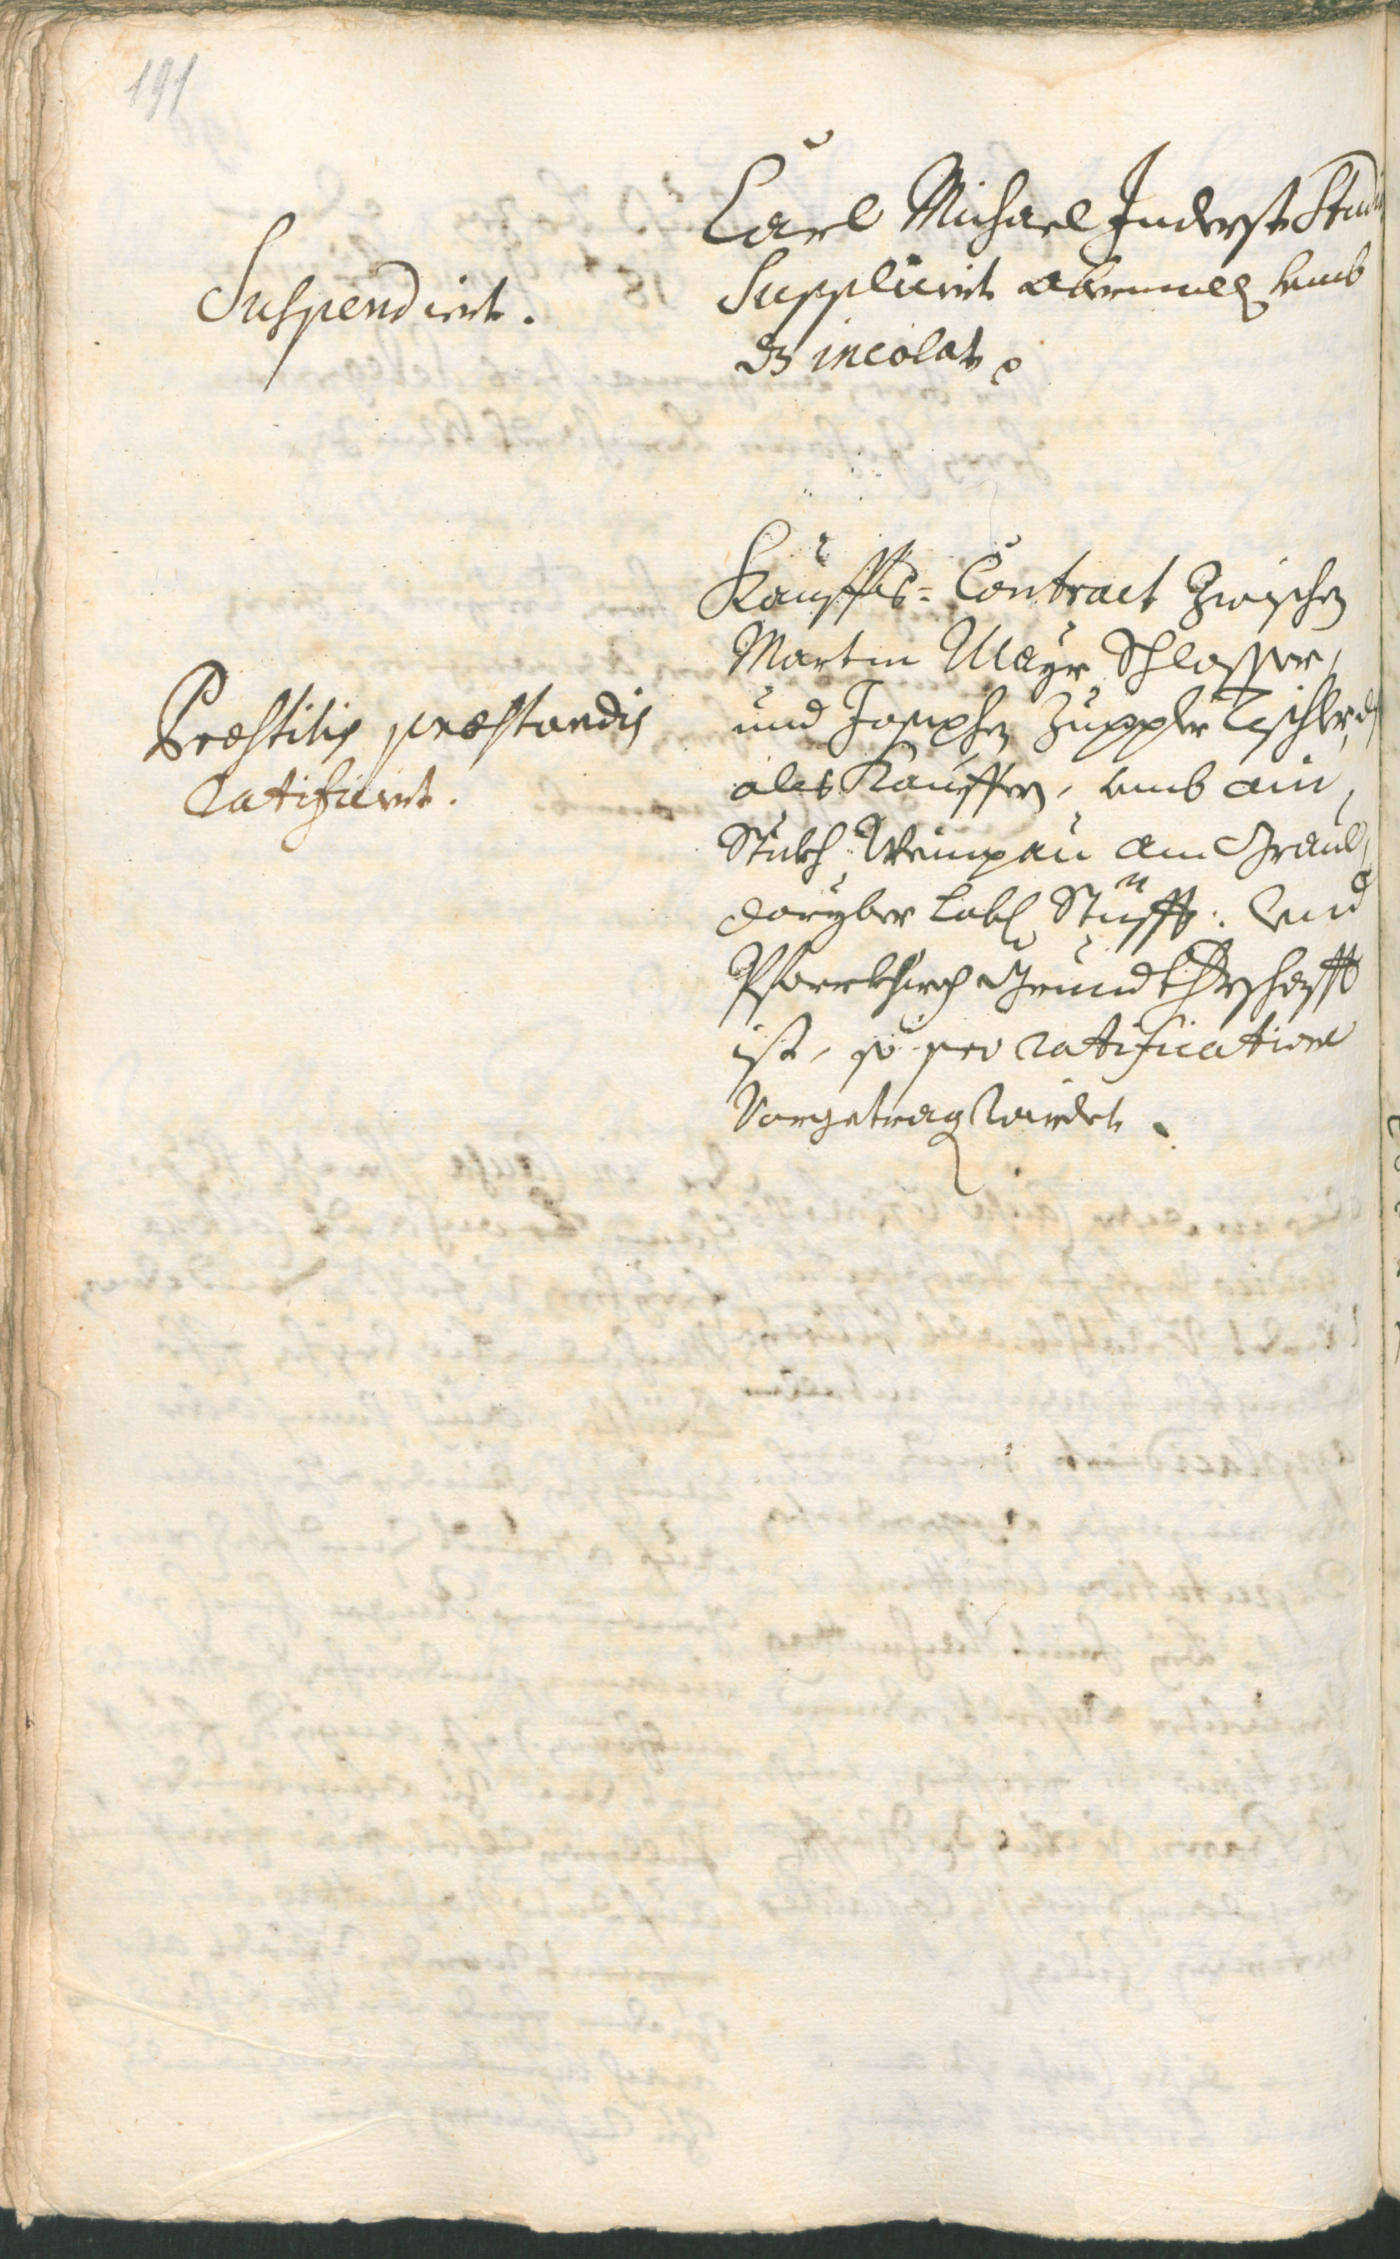 191
Suspendiert.
Carl Michael Inderst Studi
Supplicirt abermall umb
dz incolat.
Præstitis præstandis
ratificiert.
Kauffs-Contract zwischen
Martin Mayr Schlosser,
und Josephen Zuppler Tischler,
als Kauffern, umb ain
Stukh Weinpau am Graul,
daryber Lobl Stüfft. und
Pfarrkhirch Grundtherschafft
ist, so pro ratificatione
Vorgetragen wirdet.